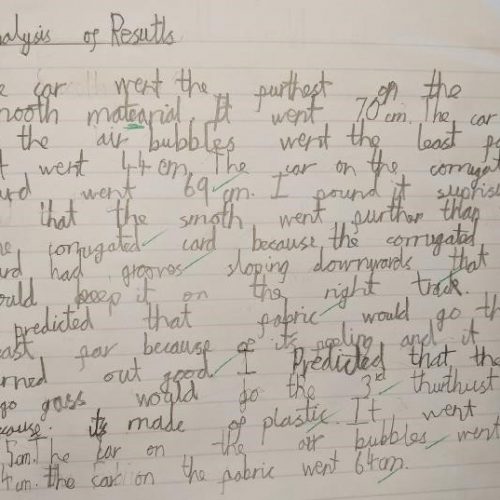 nalysis of Resutls
e car went the purthest on the
mooth matearial. It went 70cm. The car
the air bubbles went the least pa
t went 44cm. The car on the corrugat
ard went 69cm. I pound it suprisi
that the smoth went purther than
he corrugated card because the corrugated
ard had grooves sloping downwards that
ould keep it on the right track.
predicted that pabric would go th
east par because of its peeling and it
urned out good. I Predicted that the
go gass would go the 3rd thurthust
ecause its made of plastic. It went
5cm. The car on the air bubbles went
4cm. the car on the pabric went 64cm.